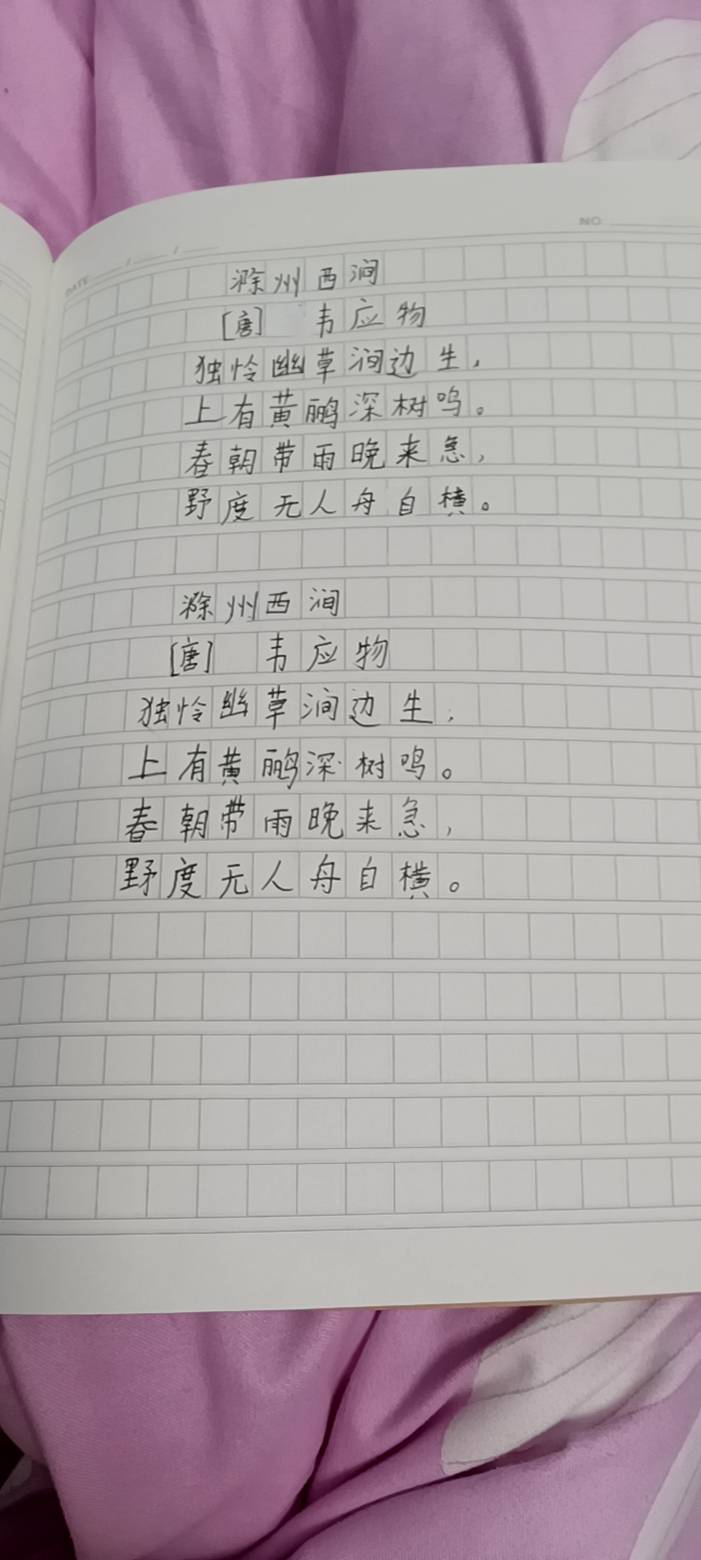 NO
DATE / /
滁州西涧
[唐] 韦应物
独怜幽草涧边生,
上有黄鹂深树鸣。
春朝带雨晚来急,
野度无人舟自横。
滁州西涧
[唐] 韦应物
独怜幽草涧边生,
上有黄鹂深树鸣。
春朝带雨晚来急,
野度无人舟自横。